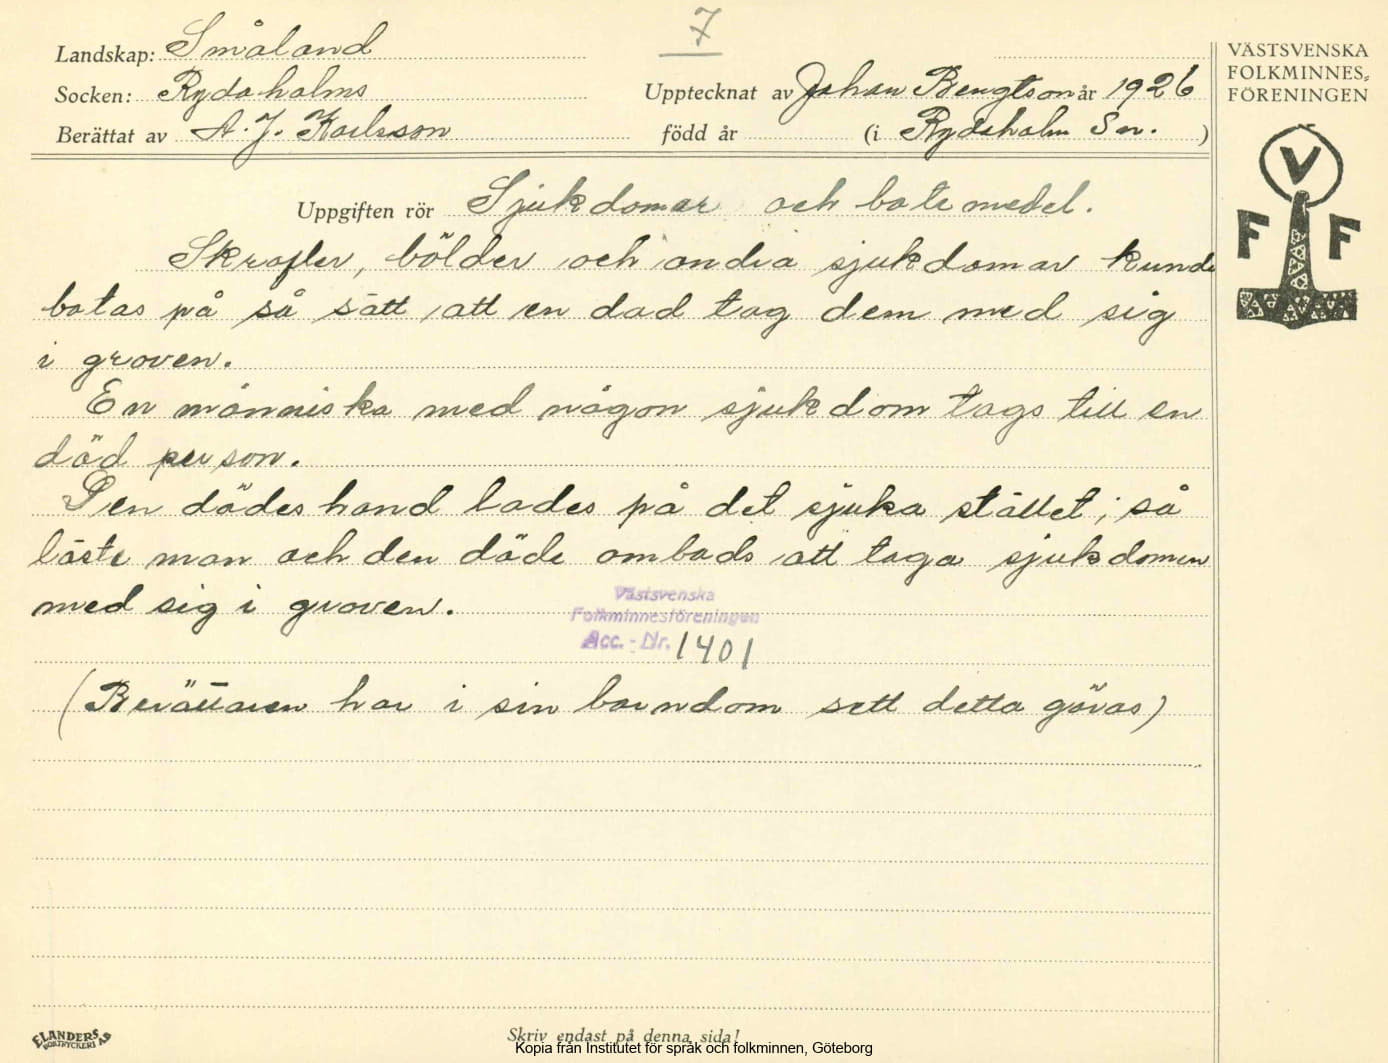 7
Landskap: Småland
Socken: Rydaholms
Berättat av A. J. Karlsson
Upptecknat av Johan Bengtson år 1926
född år (i Rydaholm Sn. )
VÄSTSVENSKA
FOLKMINNES-
FÖRENINGEN
V
F F
Uppgiften rör Sjukdomar och botemedel.
Skrofler, bölder och andra sjukdomar kunde
botas på så sätt att en död tog dem med sig
i graven.
En människa med någon sjukdom togs till en
död person.
Den dödes hand lades på det sjuka stället; så
läste man och den döde ombads att taga sjukdomen
med sig i graven.
Västsvenska
Folkminnesföreningen
Acc. - Nr. 1401
(Berättaren har i sin barndom sett detta göras)
ELANDERS
BOKTRYCKERI AB
Skriv endast på denna sida!
Kopia från Institutet för språk och folkminnen, Göteborg